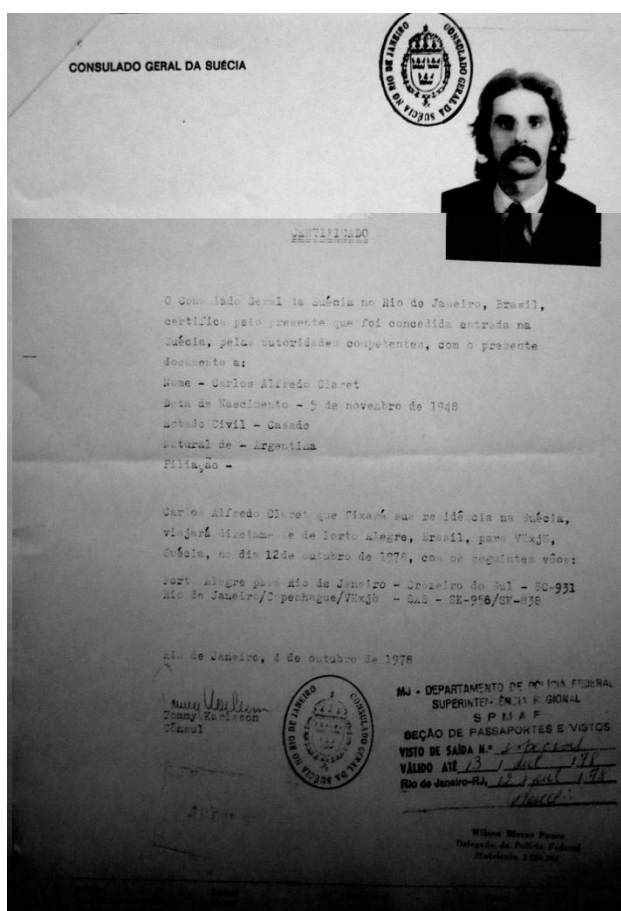 CONSULADO GERAL DA SUÉCIA
CONSULADO GERAL DA SUÉCIA NO RIO DE JANEIRO
CERTIFICADO
O Consulado Geral da Suécia no Rio de Janeiro, Brasil,
certifica pelo presente que foi concedida entrada na
Suécia, pelas autoridades competentes, com o presente
documento a:
Nome - Carlos Alfredo Claret
Data de Nascimento - 5 de novembro de 1948
Estado Civil - Casado
Natural de - Argentina
Filiação -
Carlos Alfredo Claret que fixará sua residência na Suécia,
viajará diretamente de Porto Alegre, Brasil, para
Suécia, no dia 12de outubro de 1978, com os seguintes vôos:
Porto Alegre para Rio de Janeiro - Cruzeiro do Sul - SC-931
Rio de Janeiro/Copenhague/ - SAS - SK-958/SK-838
Rio de Janeiro, 4 de outubro de 1978
Tommy Karlsson
Cônsul
CONSULADO GERAL DA SUÉCIA NO RIO DE JANEIRO
MJ - DEPARTAMENTO DE POLICIA FEDERAL
SUPERINTENDÊNCIA REGIONAL
S P M A F
SEÇÃO DE PASSAPORTES E VISTOS
VISTO DE SAÍDA N.º
VÁLIDO ATÉ 13 / out / 78
Rio de Janeiro-RJ, 12 / out / 78
Delegado de Polícia Federal
Matrícula